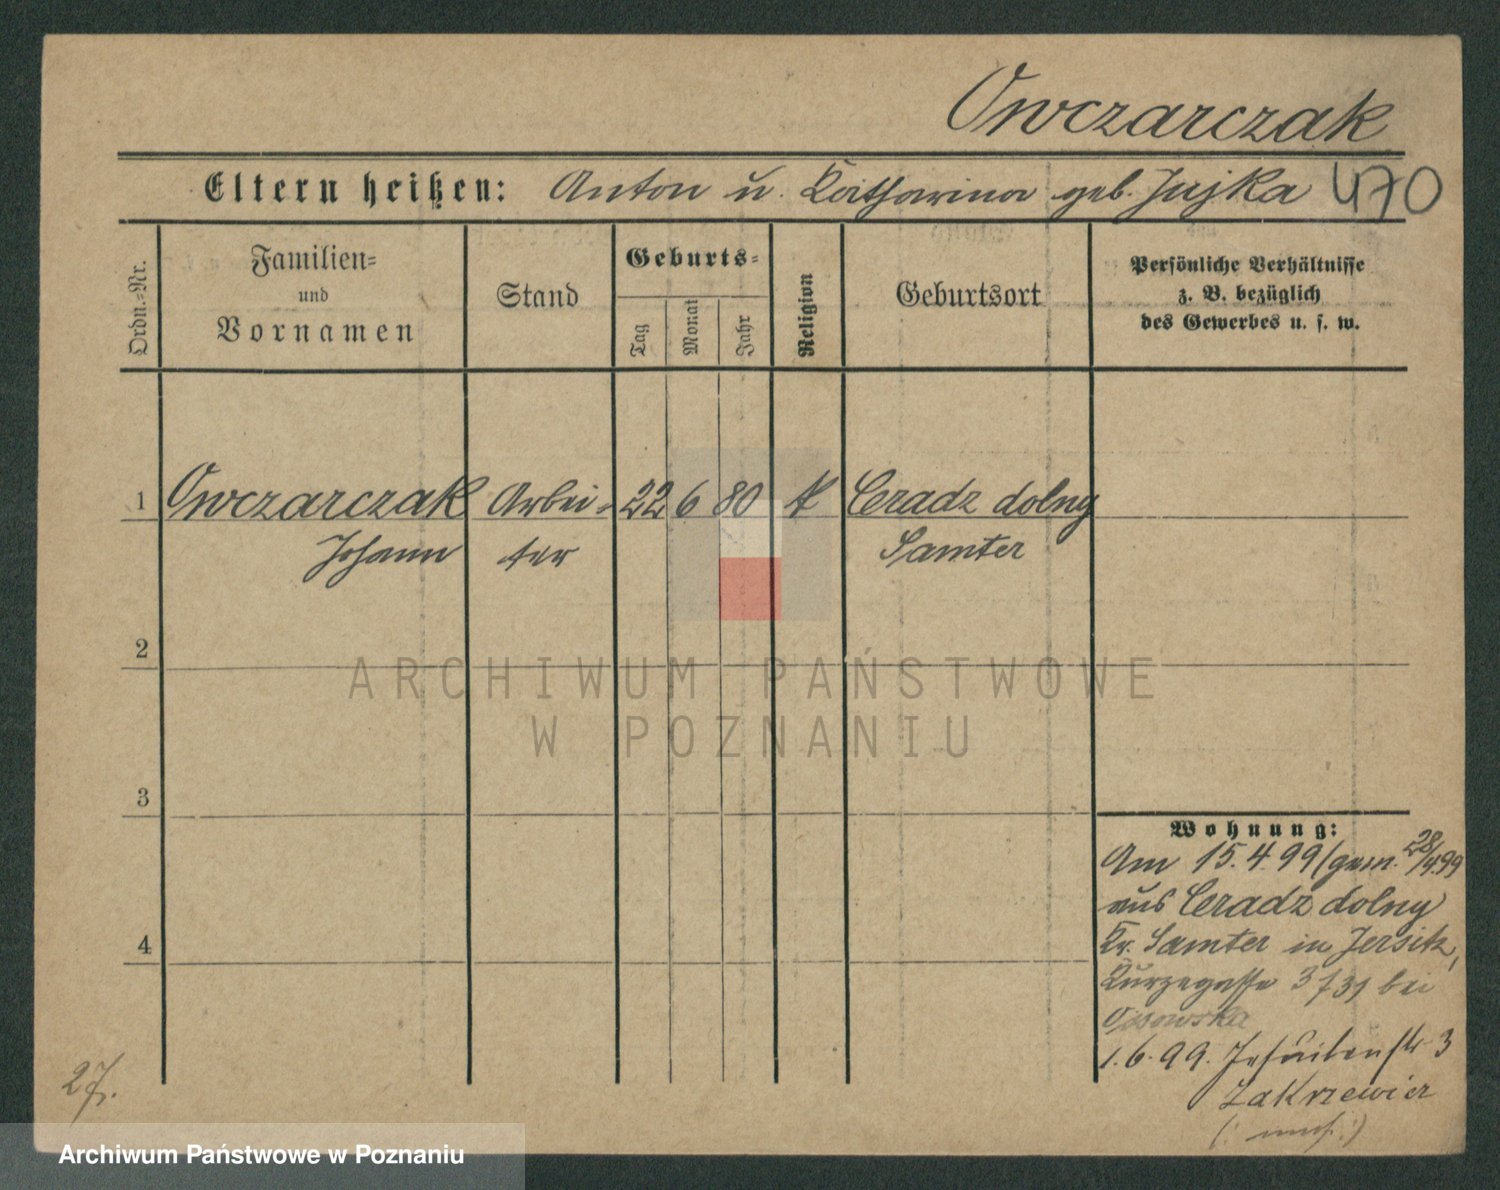 Owczarczak
Eltern heißen: Anton u. Katharina geb. Jujka 470
Ordn.-Nr.
Familien-
und
Vornamen
Stand
Geburts-
Tag
Monat
Jahr
Religion
Geburtsort
Persönliche Verhältnisse
z. B. bezüglich
des Gewerbes u. s. w.
1 Owczarczak Arbei- 22 6 80 k Ceradz dolny
Johann ter Samter
2
3
4
ARCHIWUM PAŃSTWOWE
W POZNANIU
Wohnung:
Am 15.4.99 (gem. 28/4.99
aus Ceradz dolny
Kr. Samter in Jersitz,
Kurzegasse bei
Ossowska
1.6.99. Jesuitenstr 3
Zakrzewicz
27.
Archiwum Państwowe w Poznaniu